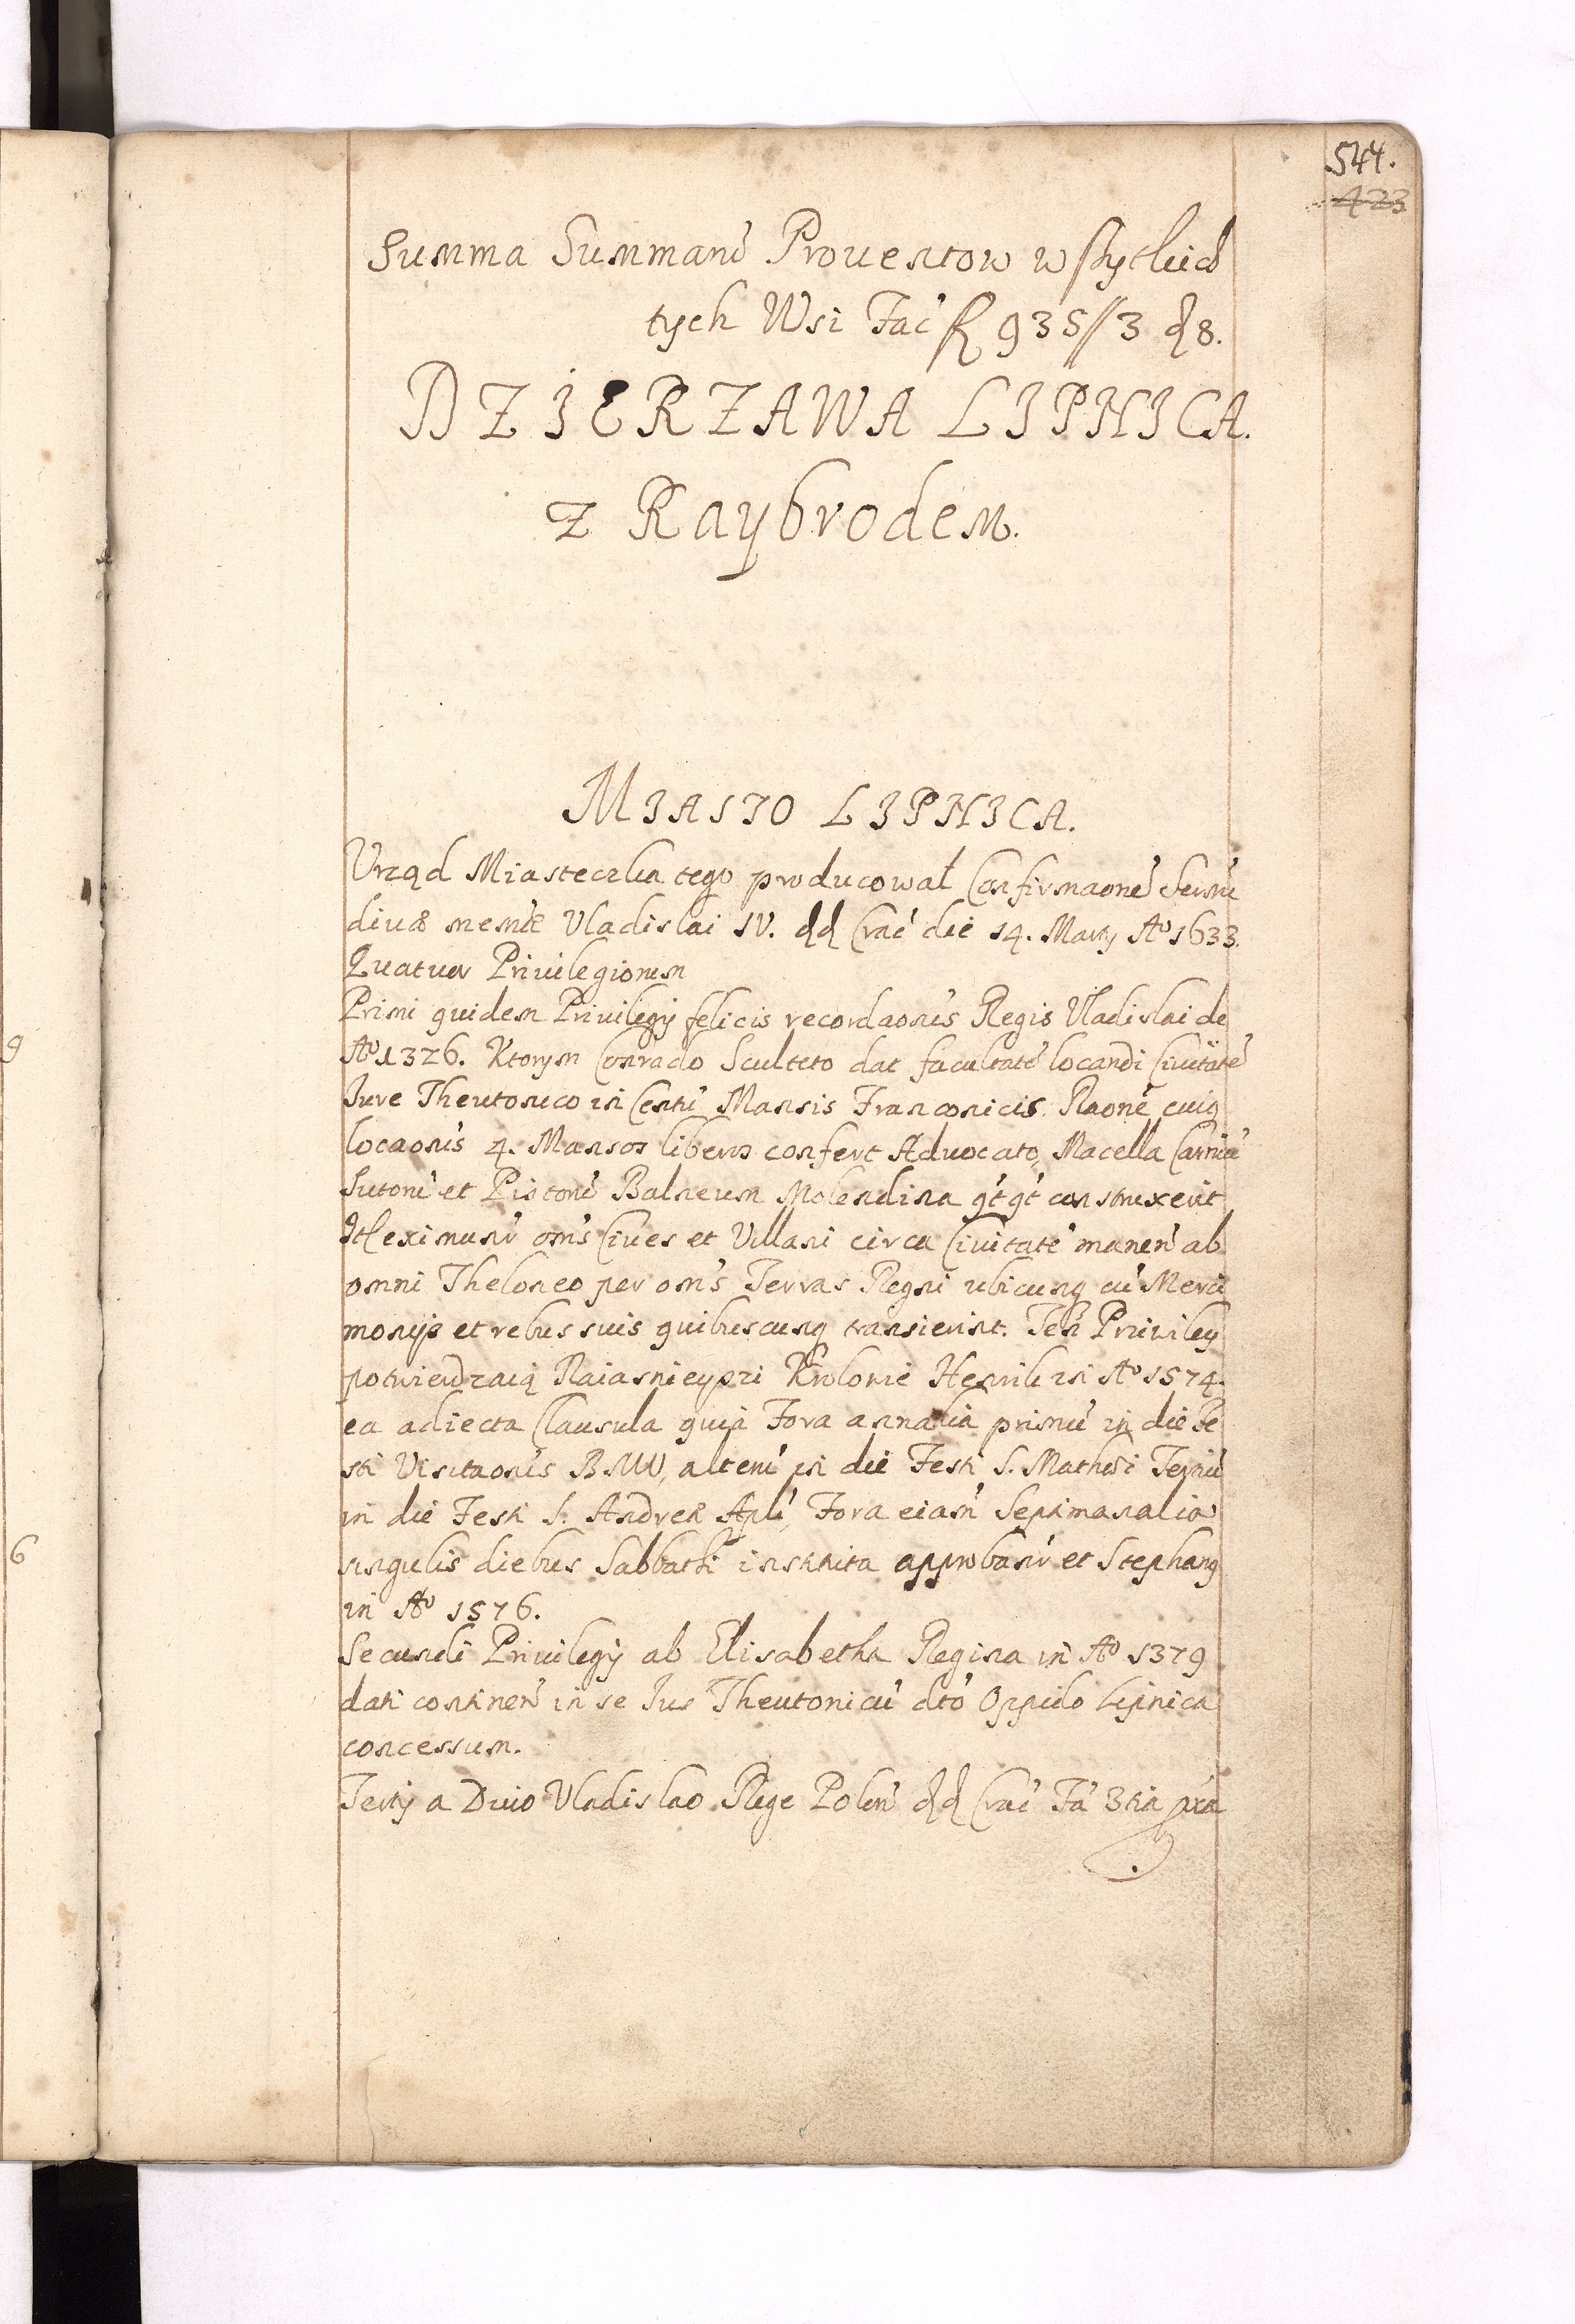 544.
423
Summa Summaru̅ Prouentow wszytkich
tych Wsi Fac̅ fl 935//3 d 8.
DZIERZAWA LIPNICA.
z Raybrodem.
MIASTO LIPNICA.
Vrząd Miasteczka tego producował Confirmaone̅ Sermi
diuæ mem̅æ Vladislai IV. dd Crac̅ die 14. Marty Aº 1633.
Quatuor Priuilegiorum
Primi quidem Priuilegij felicis recordaonis Regis Vladislai de
Aº 1326. Ktorym Conrado Sculteto dat facultate̅ locandi Ciuitate̅
Iure Theutonico in Centu̅ Mansis Franconicis. Raone̅ cuiq
locaonis 4. Mansos liberos confert Aduocato, Macella Carniu̅
Sutoru̅ et Pistoru̅ Balneum Molendina qt̅ qt̅ construxerit
Itt eximunt̅ om̅s Ciues et Villani circa Ciuitate̅ manen̅ ab
omni Theloneo per om̅s Terras Regni ubicunq cu̅ Merci
monijs et rebus suis quibuscunq transierint. Ten Priuiley
potwierdzaią Naiasnieyszi Krolowie Henrik in Aº 1574.
ea adiecta Clausula quia Fora annalia primu̅ in die Fe
sti Visitaonis B.MV, alteru̅ in die Festi S. Mathæi Tertiu̅
in die Festi S. Andreæ Apli̅, Fora eiam̅ Septimanalia
singulis diebus Sabbathi instituta approbant̅ et Stephang
in Aº 1576.
Secundi Priuilegij ab Elisabetha Regina in Aº 1379
dati continen̅ in se Ius Theutonicu̅ dto̅ Oppido Lipnica
concessum.
Tertij a Diuo Vladislao Rege Polon̅ dd Crac̅ Fa̅ 3tia pxa̅
9
6